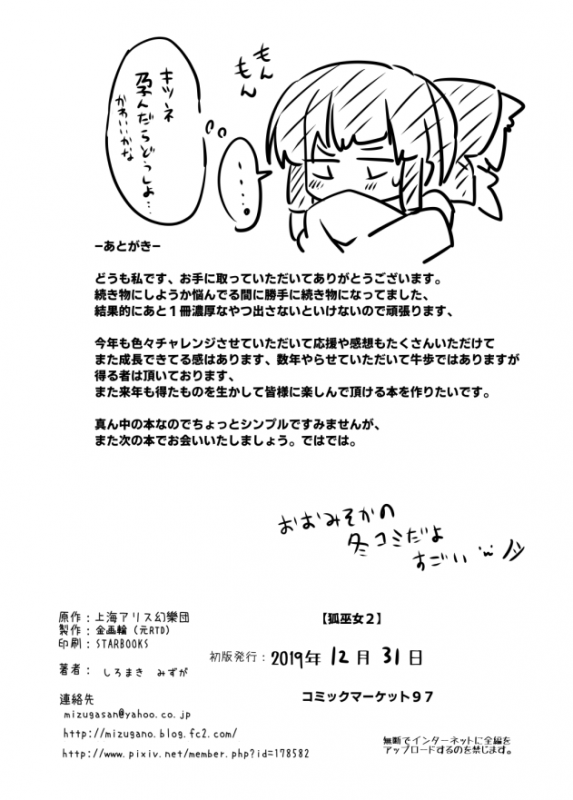 もんもん
キツネ
孕んだらどうしよ…
かわいいかな
・・・・。
ーあとがきー
どうも私です、お手に取っていただいてありがとうございます。
続き物にしようか悩んでる間に勝手に続き物になってました、
結果的にあと１冊濃厚なやつ出さないといけないので頑張ります、
今年も色々チャレンジさせていただいて応援や感想もたくさんいただけて
また成長できてる感はあります、数年やらせていただいて牛歩ではありますが
得る者は頂いております、
また来年も得たものを生かして皆様に楽しんで頂ける本を作りたいです。
真ん中の本なのでちょっとシンプルですみませんが、
また次の本でお会いいたしましょう。ではでは。
おおみそかの
冬コミだよ
すごい
原作：上海アリス幻樂団
製作：金画輪（元RTD）
印刷：STARBOOKS
著者： しろまき みずが
連絡先
mizugasan@yahoo.co.jp
http://mizugano.blog.fc2.com/
http://www.pixiv.net/member.php?id=178582
【狐巫女２】
初版発行：2019年 12月 31日
コミックマーケット９７
無断でインターネットに全編を
アップロードするのを禁じます。